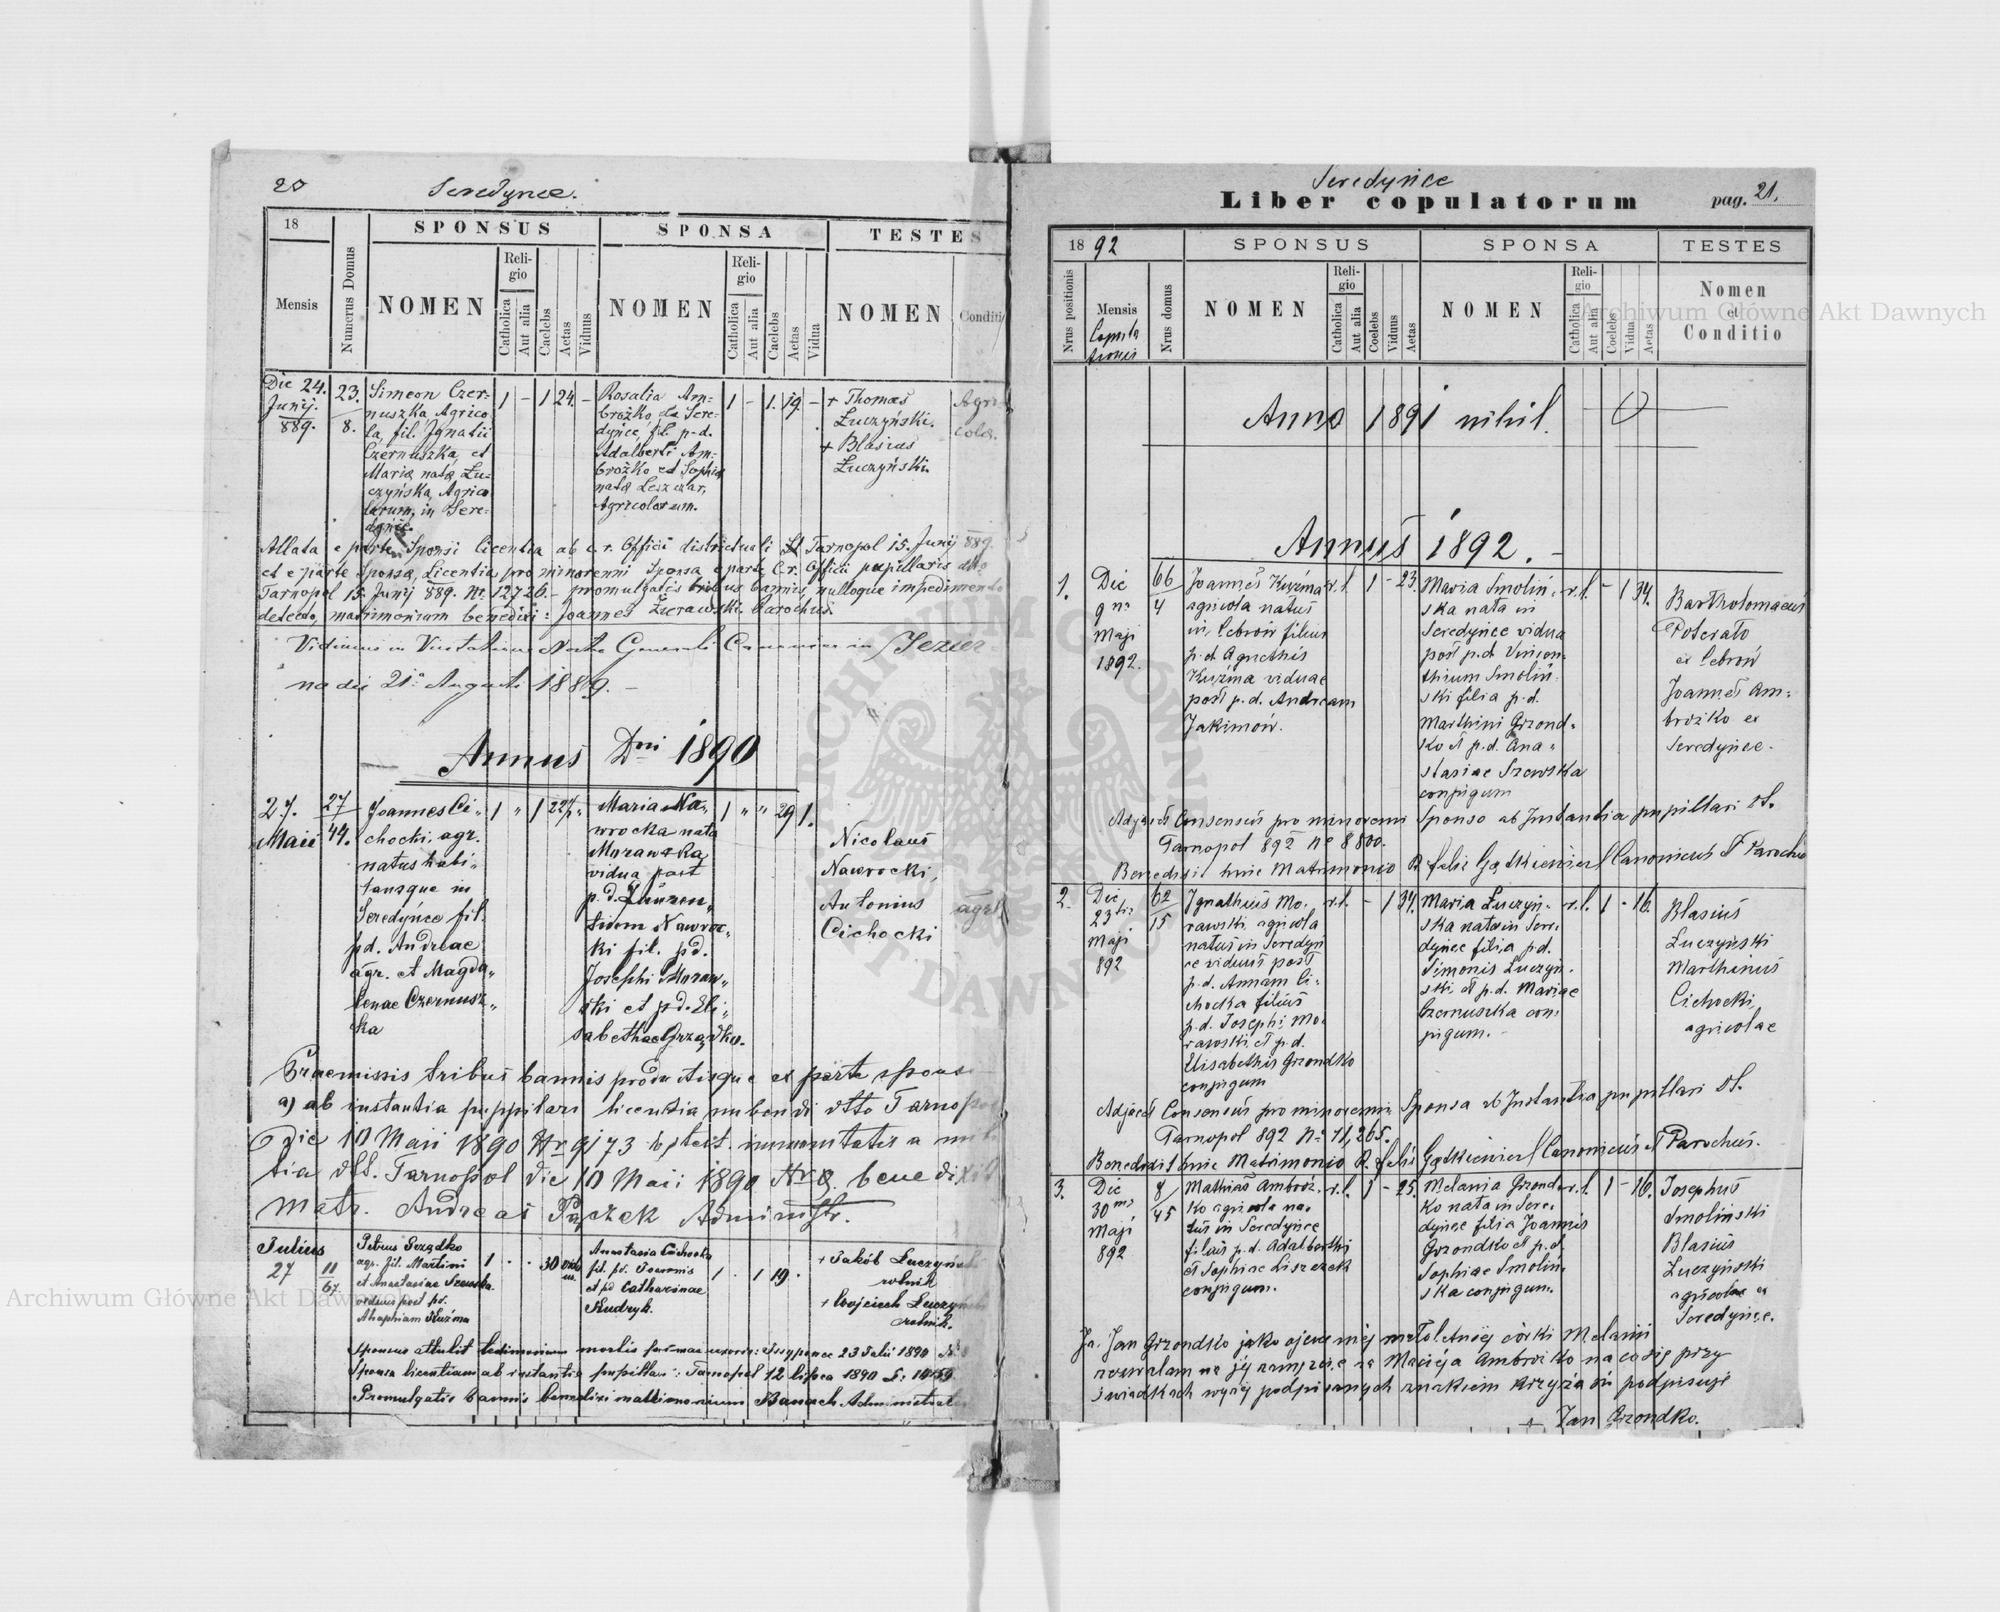 20
Seredyńce.
18
SPONSUS
SPONSA
TESTES
Mensis
Numerus Domus
NOMEN
Reli-
gio
Catholica
Aut alia
Caelebs
Aetas
Viduus
NOMEN
Reli-
gio
Catholica
Aut alia
Caelebs
Aetas
Vidua
NOMEN
Conditi
Die 24.
Junij.
889.
23.
8.
Simeon Czer-
nuszka, Agrico
la, fil. Ignatii
Czernuszka, et
Maria nata Łu-
czyńska, Agrico
larum, in Sere-
dyńce.
1 - 1 24. -
Rosalia Am-
brożko, da Sere-
dyńce, fil. p.d.
Adalberti Am-
brożko et Sophia
nata Leszczar,
Agricolarum.
1 - 1. 19. -
+ Thomas
Łuczyński.
+ Blasius
Łuczyński.
Agri-
cola.
Allata e parte Sponsi licentia ab c. r. Offici districtuali Tarnopol 15. Junij 889.
et e parte Sponsa, Licentia pro minorenni Sponsa e parte C. r. Offici pupillaris dtto
Tarnopol 15. Junij 889. Nr. 12726. - promulgatis tribus bannis, nulloque impedimento
detecto, matrimonium benedixi: Joannes Żurawski. Parochus.
na die 21a Augusti 1889. -
Annus Dni 1890
27.
Maii
27
44.
Joannes Ci-
chocki, agr.
natus habi-
tansque in
Seredyńce fil.
pd. Andreae
agr. et Magda-
lenae Czernusz-
ka
1 " 1 22½ "
Maria Na-
wrocka nata
Morawska
vidua post
p.d. Lauren-
tium Nawroc-
ki fil. pd.
Josephi Moraw-
ski et p.d. Eli-
sabethae Grządko.
1 " " 29 1.
Nicolaus
Nawrocki,
Antonius
Cichocki
agrl
Praemissis tribus bannis productisque ex parte sponsi
a) ab instantia puppilari licentia nubendi dtto Tarnopol
Die 10 Maii 1890 Nr 9173 b) test. immunitatis a mili
tia dtt. Tarnopol die 10 Maii 1890 Nr 8. benedixi
matr. Andreas Pączek Administr.
Julius
27
11
67
Petrus Grządko
agr. fil. Martini
et Anastasiae Szewska.
viduus post pd.
Ahaphiam Kuźma
1 . . 30 vid
uus.
Anastasia Cichocka
fil. pd. Joannis
et pd Catharinae
Kudryk.
1 . 1 19 .
+ Jakób Łuczyński
rolnik
+ Wojciech Łuczyński
rolnik.
Sponsus attulit testimonium mortis primae uxoris: 23 Julii 1890
Sponsa licentiam ab instantia pupillari: Tarnopol 12 lipca 1890
Promulgatis bannis benedixi matrimonium Banach Administrator
Seredyńce
Liber copulatorum
pag. 21.
18 92
SPONSUS
SPONSA
TESTES
Nrus positionis
Mensis
Copula
tionis
Nrus domus
NOMEN
Reli-
gio
Catholica
Aut alia
Coelebs
Viduus
Aetas
NOMEN
Reli-
gio
Catholica
Aut alia
Coelebs
Vidua
Aetas
Nomen
et
Conditio
Anno 1891 nihil.
Annus 1892. -
1.
Die
9na
Maji
1892.
66
4
Joannes Kuźma
agricola natus
in Cebrów filius
p.d. Agnethis
Kuźma viduae
post p.d. Andream
Jakimów.
r.l. 1 - 23.
Maria Smoliń-
ska nata in
Seredyńce vidua
post p.d. Vincen-
thium Smoliń-
ski filia p.d.
Marthini Grzond-
ko et p.d. Ana-
stasiae Szewska
conjugum
r.l. - 1 34.
Bartholomaeus
Poterało
ex Cebrów
Joannes Am-
brożko ex
Seredyńce.
Adjacet Consensus pro minorenni Sponso ab Instantia pupillari dt.
Tarnopol 892 No 8800.
Benedixit huic Matrimonio R. Felix Gątkiewicz Canonicus et Parochus
2.
Die
23tia
Maji
892
62
15
Ignathius Mo-
rawski, agricola
natus in Seredyń
ce viduus post
p.d. Annam Ci-
chocka filius
p.d. Josephi Mo-
rawski et p.d.
Elisabethis Grzondko
conjugum
r.l. - 1 34.
Maria Łuczyń-
ska nata in Sere-
dyńce filia p.d.
Simonis Łuczyń-
ski et p.d. Mariae
Czernuszka con-
jugum. -
r.l. 1 - 16.
Blasius
Łuczyński
Marthinus
Cichocki,
agricolae
Adjacet Consensus pro minorenni Sponsa ab Instantia pupillari dt.
Tarnopol 892 No 11,265.
Benedixit huic Matrimonio R. Felix Gątkiewicz Canonicus et Parochus.
3.
Die
30ma
Maji
892
8
45
Mathias Ambroż-
ko agricola na-
tus in Seredyńce
filius p.d. Adalberthi
et Sophiae Liszczek
conjugum.
r.l. 1 - 25.
Melania Grzond-
ko nata in Sere-
dyńce filia Joannis
Grzondko et p.d.
Sophiae Smoliń-
ska conjugum.
r.l. 1 - 16.
Josephus
Smoliński
Blasius
Łuczyński
agricolae ex
Seredyńce.
Ja. Jan Grzondko jako ojciec mej małoletniej córki Melanii
zezwalam na jej zamęzcie za Macieja Ambrożko na co się przy
świadkach wyżej podpisanych znakiem krzyża św podpisuję
+ Jan Grzondko.
Archiwum Główne Akt Dawnych
Archiwum Główne Akt Dawnych
ARCHIWUM GŁÓWNE AKT DAWNYCH